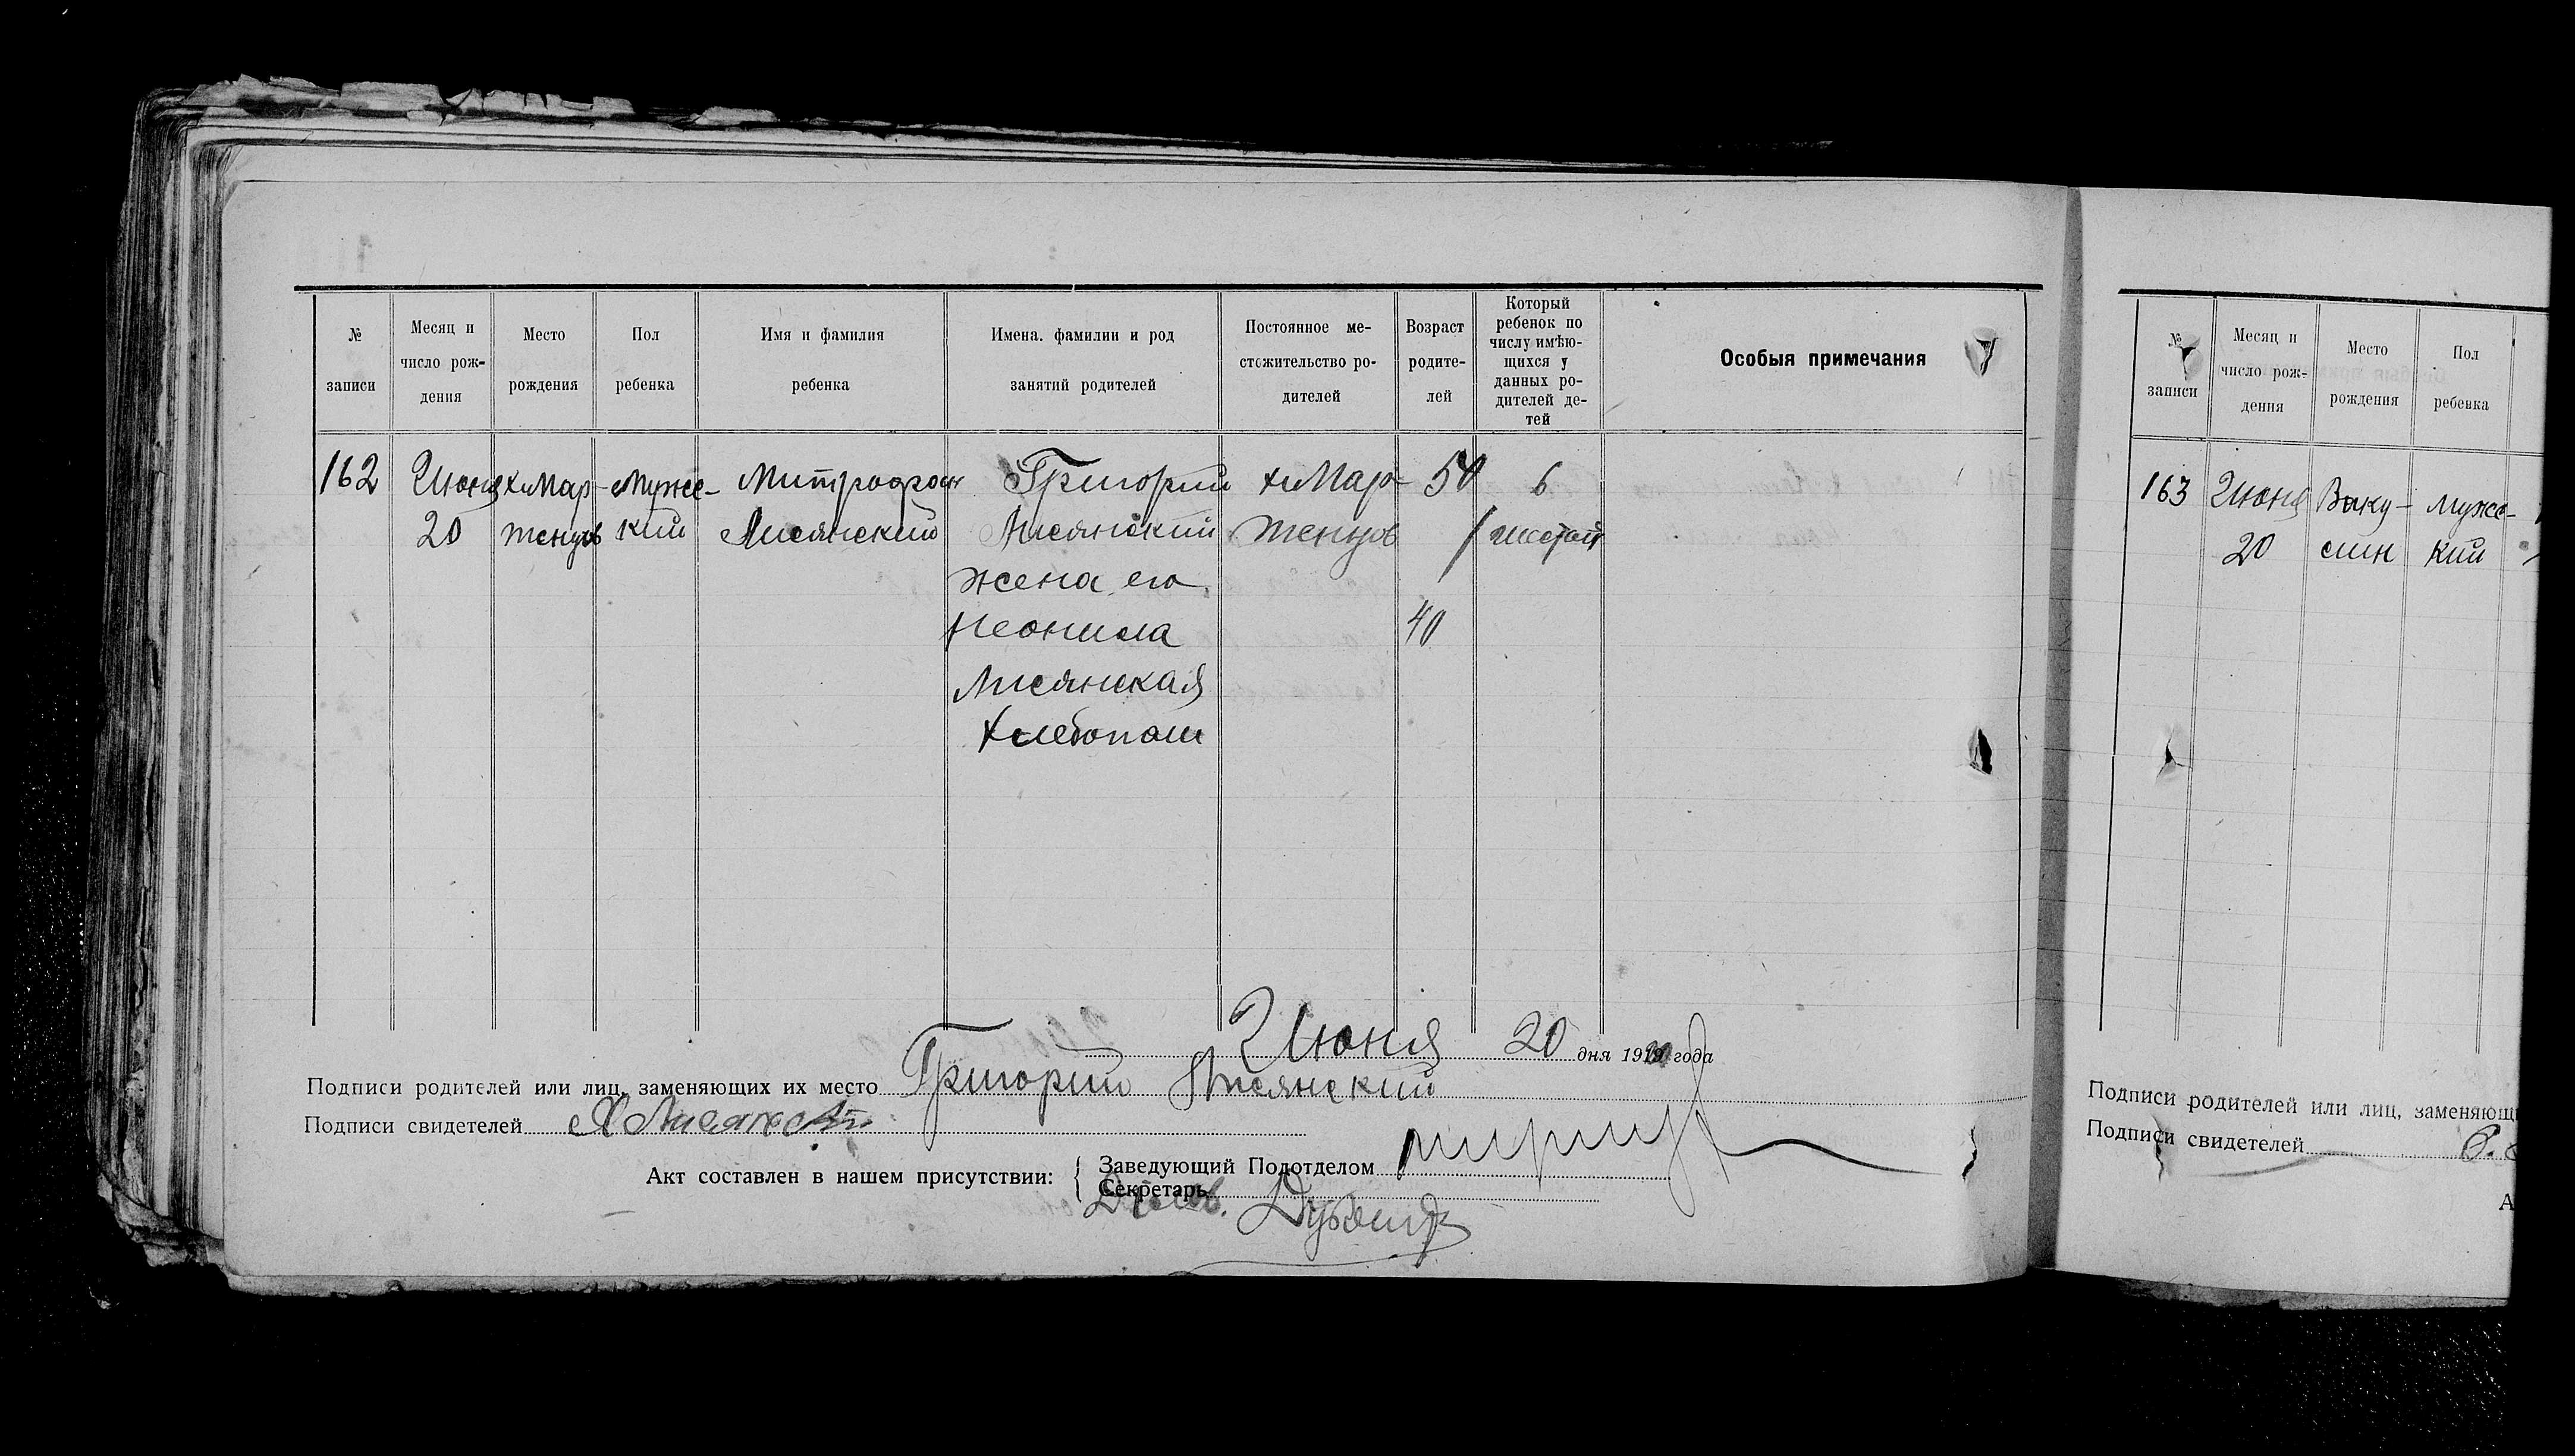 № записи
Месяц и число рождения
Место рождения
Пол ребенка
Имя и фамилия ребенка
Имена. фамилии и род занятий родителей
Постоянное местожительство родителей
Возраст родителей
Который ребенок по числу имѣющихся у данных родителей детей
Особыя примечания
162
Июня
20
х. Мар-
тенцов
Мужс-
кий
Митрофан
Лисянский
Григорий
Лисянский
жена его
Неонила
Лисянская
Хлебопаш
х. Мар-
тенцов
50
40
6
/шестой
Июня 20 дня 1920 года
Подписи родителей или лиц, заменяющих их место Григорий Лисянский
Подписи свидетелей
Акт составлен в нашем присутствии:
Заведующий Подотделом
Секретарь
№ записи
Месяц и число рождения
Место рождения
Пол ребенка
163
Июня
20
Ваку-
син
Мужс-
кий
Подписи родителей или лиц, заменяющ
Подписи свидетелей
А